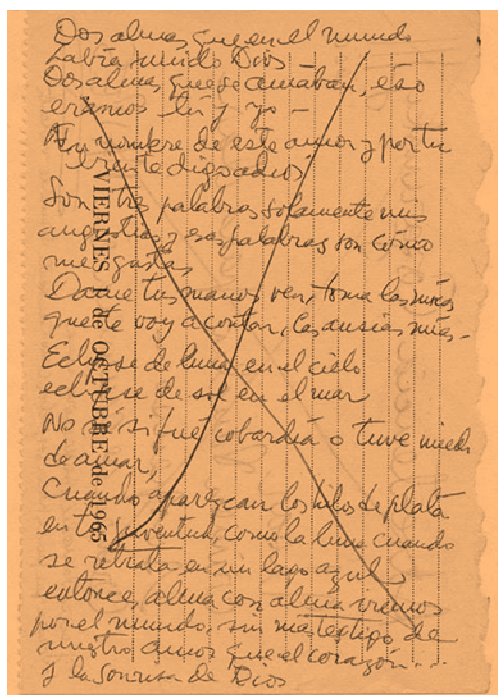 Dos almas que en el mundo
había unido Dios –
Dos almas que se amaban, eso
eramos tú y yo –
En nombre de este amor y por tu
bien te digo adios
Son tres palabras solamente mis
angustias, y esas palabras son cómo
me gustas
Dame tus manos ven, toma las mías
que te voy a contar, las ansias mías –
Eclipse de luna en el cielo
eclipse de sol en el mar
No sé si fué cobardía o tuve miedo
de amar,
Cuando aparezcan los hilos de plata
en tu juventud, como la luna cuando
se retrata en un lago azul
entonce, alma con alma iremos
por el mundo, sin mas testigo de
nuestro amor que el corazón...
y la sonrisa de Dios
VIERNES 1 de OCTUBRE de 1965